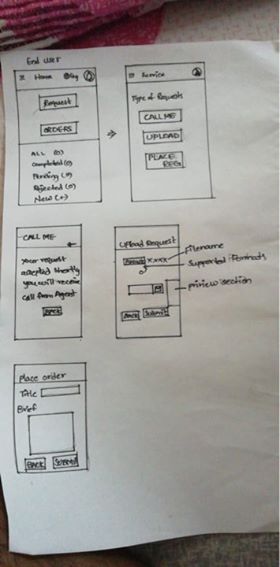 End user
Home
Request
ORDERS
ALL (0)
Completed (0)
Pending (0)
Rejected (0)
New (+)
Service
Type of Requests
CALL ME
UPLOAD
PLACE
REQ
CALL ME
your request
accepted shortly
you will receive
call from Agent
BACK
Upload Request
Browse xxxx
filename
Supported formads
priview section
Back Submit
Place order
Title
Brief
BACK SUBMIT